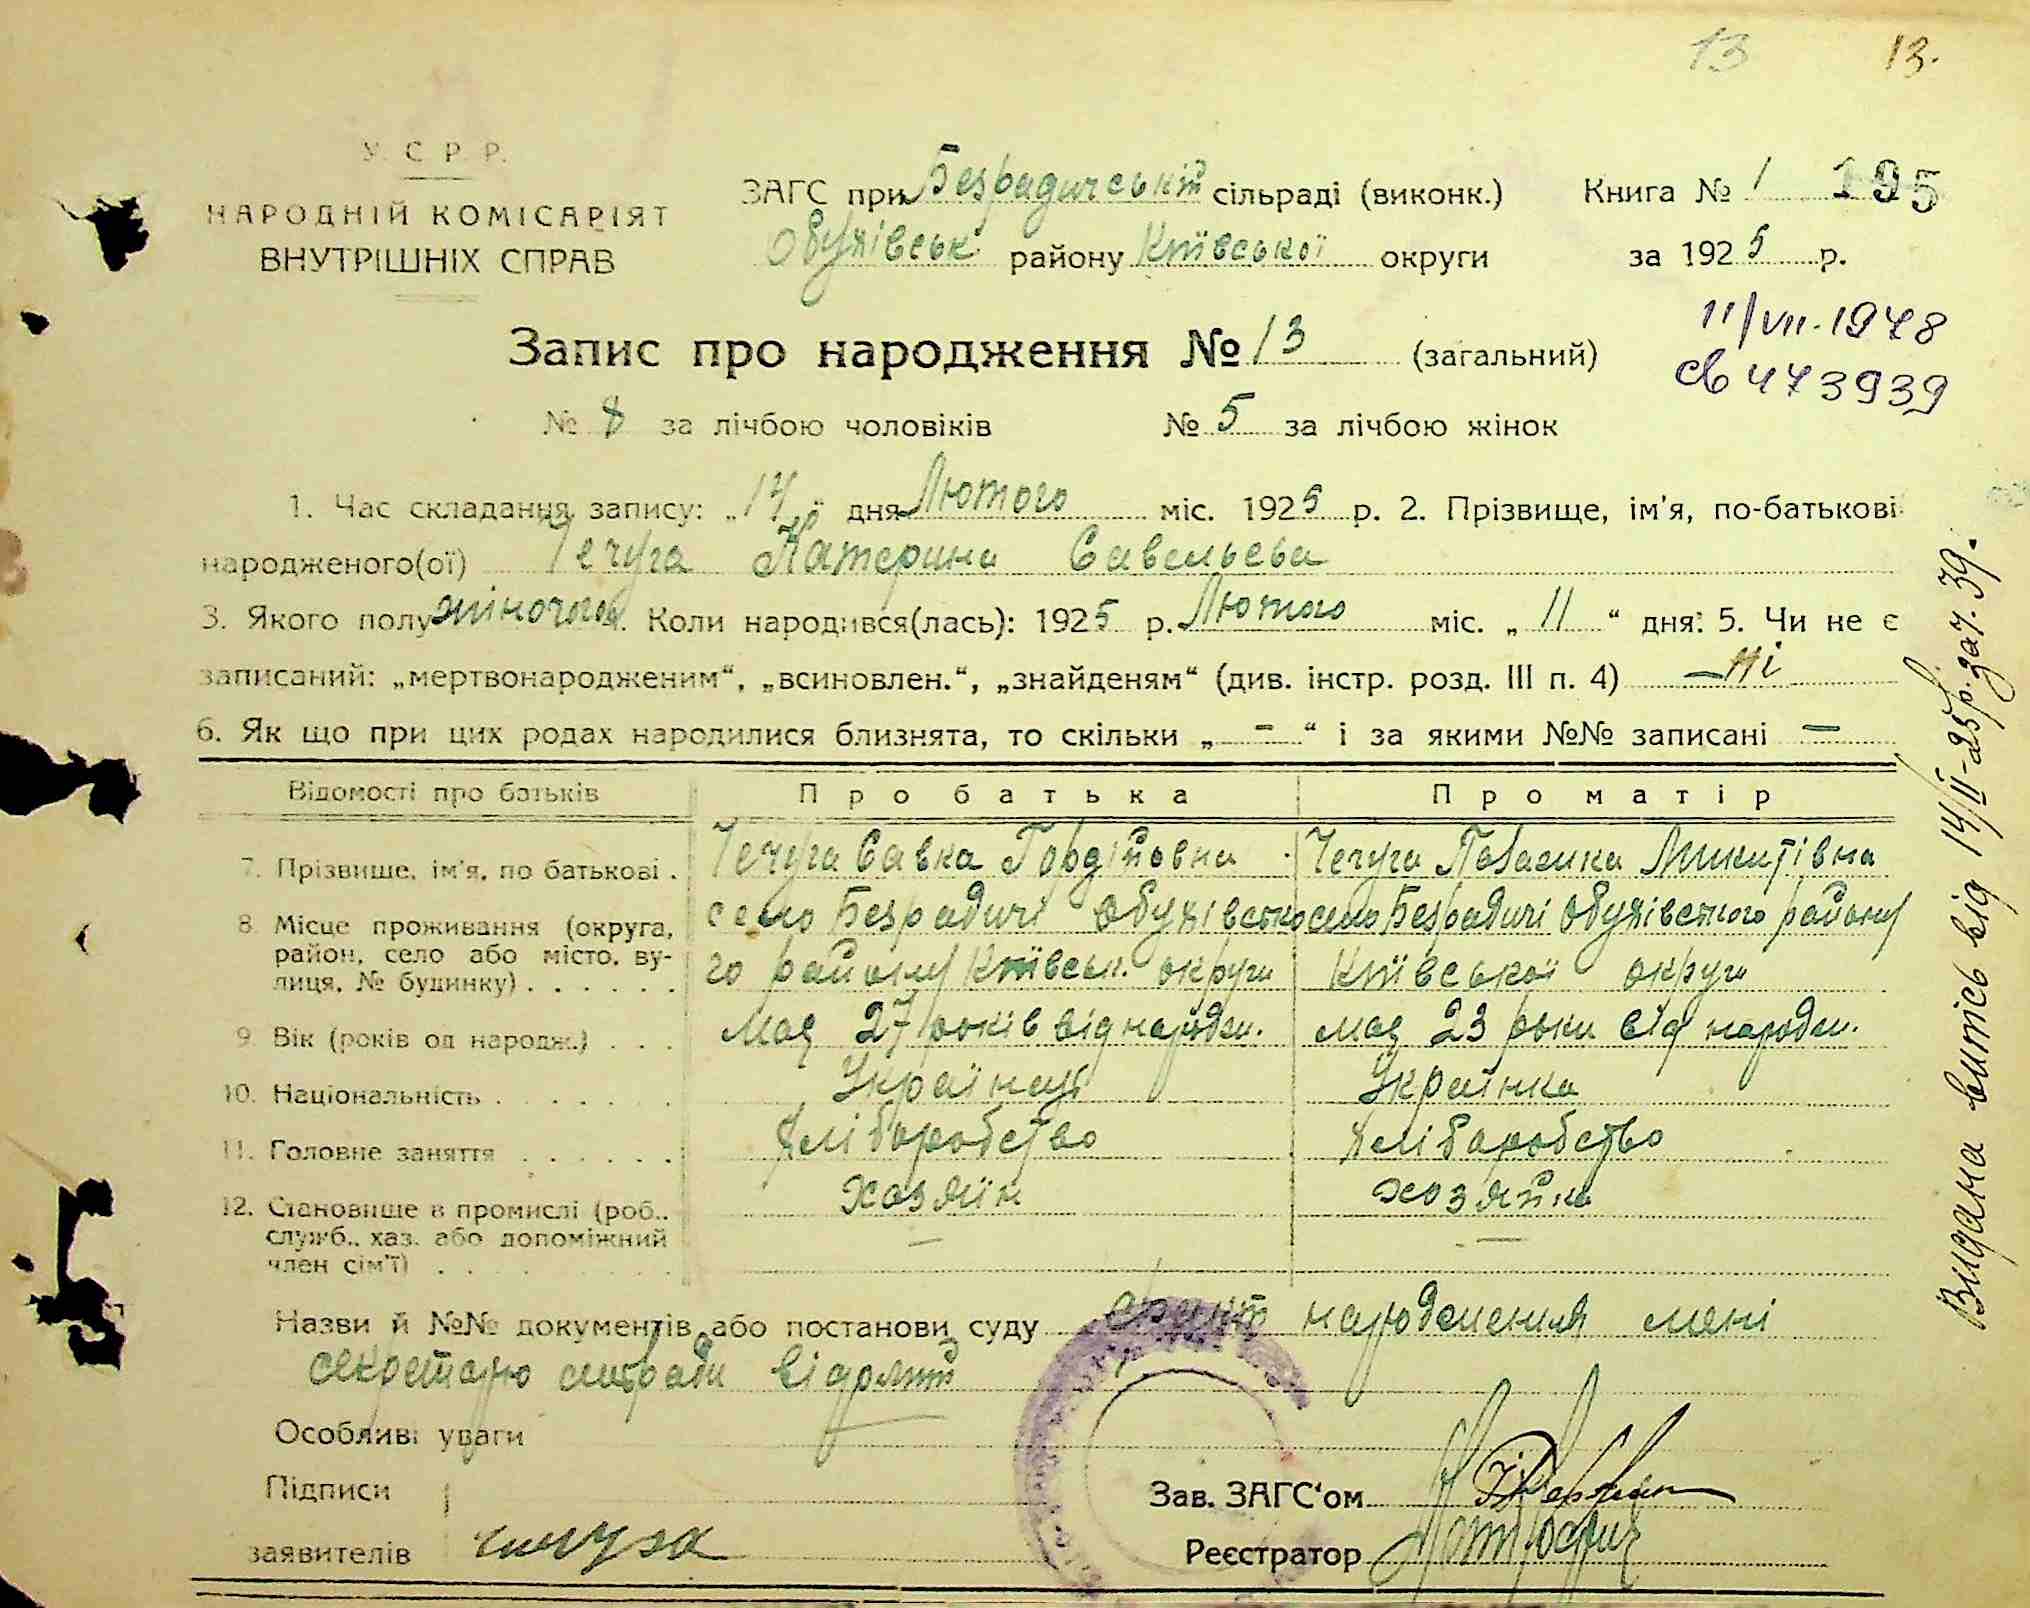 13 13.
У. С. Р. Р.
НАРОДНІЙ КОМІСАРІЯТ
ВНУТРІШНІХ СПРАВ
ЗАГС при Безрадичській сільраді (виконк.)
Обухівськ району Київської округи
Книга № 1 195
за 1925 р.
11/VII-1948
Запис про народження № 13 (загальний)
св 473939
№ 8 за лічбою чоловіків № 5 за лічбою жінок
1. Час складання запису: „14" дня Лютого міс. 1925 р. 2. Прізвище, ім'я, по-батькові
народженого(ої) Чечуга Катерина Савельева
3. Якого полу жіночого 4. Коли народився(лась): 1925 р. Лютого міс. „11" дня: 5. Чи не є
записаний: „мертвонародженим", „всиновлен.", „знайденям" (див. інстр. розд. III п. 4) — ні
6. Як що при цих родах народилися близнята, то скільки „ — " і за якими №№ записані —
Відомості про батьків Про батька Про матір
7. Прізвище, ім'я, по батькові . Чечуга Савка Гордійович Чечуга Микитівна
8. Місце проживання (округа, район, село або місто, ву-лиця, № будинку) . . . . . .
село Безрадичі Обухівсько село Безрадичі Обухівського району
го району Київськ. округи Київської округи
9. Вік (років од народж.) . . . має 27 років від народж. має 23 роки від народж.
10. Національність . . . . . . . Українець Українка
11. Головне заняття . . . . . . Хліборобство Хліборобство
12. Становище в промислі (роб., Хазяїн хозяйка
служб., хаз. або допоміжний — —
член сім'ї) . . . . . . . . .
Назви й №№ документів або постанови суду факт народження мені
секретарю сільради відомий
Особливі уваги
Підписи
заявителів Чечуга
Зав. ЗАГС'ом
Реєстратор
Видана витісь від 14/II-25 р. за ч. 39.